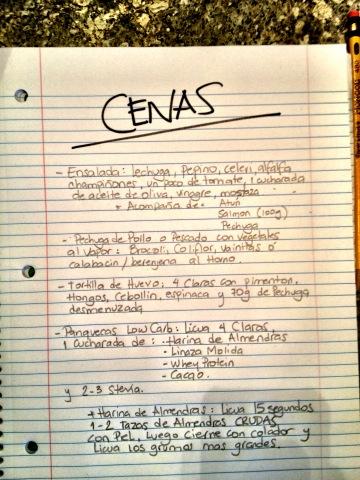 CENAS
- Ensalada: lechuga, Pepino, celeri, alfalfa
champiñones, un poco de tomate, 1 cucharada
de aceite de oliva, vinagre, mostaza
+ Acompaña de • Atun
Salmon (100g)
Pechuga
- Pechuga de Pollo o Pescado con vegetales
al vapor: Brocoli, Coliflor, vainitas o
calabacin / berenjena al Horno.
- Tortilla de Huevo: 4 Claras con pimenton,
Hongos, Cebollin, espinaca y 70g de Pechuga
desmenuzada
- Panquecas Low Carb: Licua 4 Claras,
1 Cucharada de: • Harina de Almendras
• Linaza Molida
• Whey Protein
• Cacao.
y 2-3 Stevia.
+ Harina de Almendras: Licua 15 segundos
1-2 Tazas de Almendras CRUDAS
con Piel, Luego cierne con colador y
Licua los grumos mas grandes.